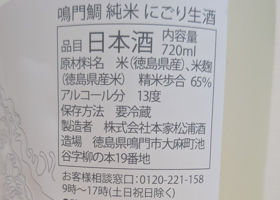 鳴門鯛 純米 にごり生酒
品目 日本酒 内容量 720ml
原材料名 米(徳島県産)、米麹
(徳島県産米) 精米歩合 65%
アルコール分 13度
保存方法 要冷蔵
製造者 株式会社本家松浦酒
造場 徳島県鳴門市大麻町池
谷字柳の本19番地
お客様相談窓口:0120-221-158
9時〜17時(土日祝日除く)